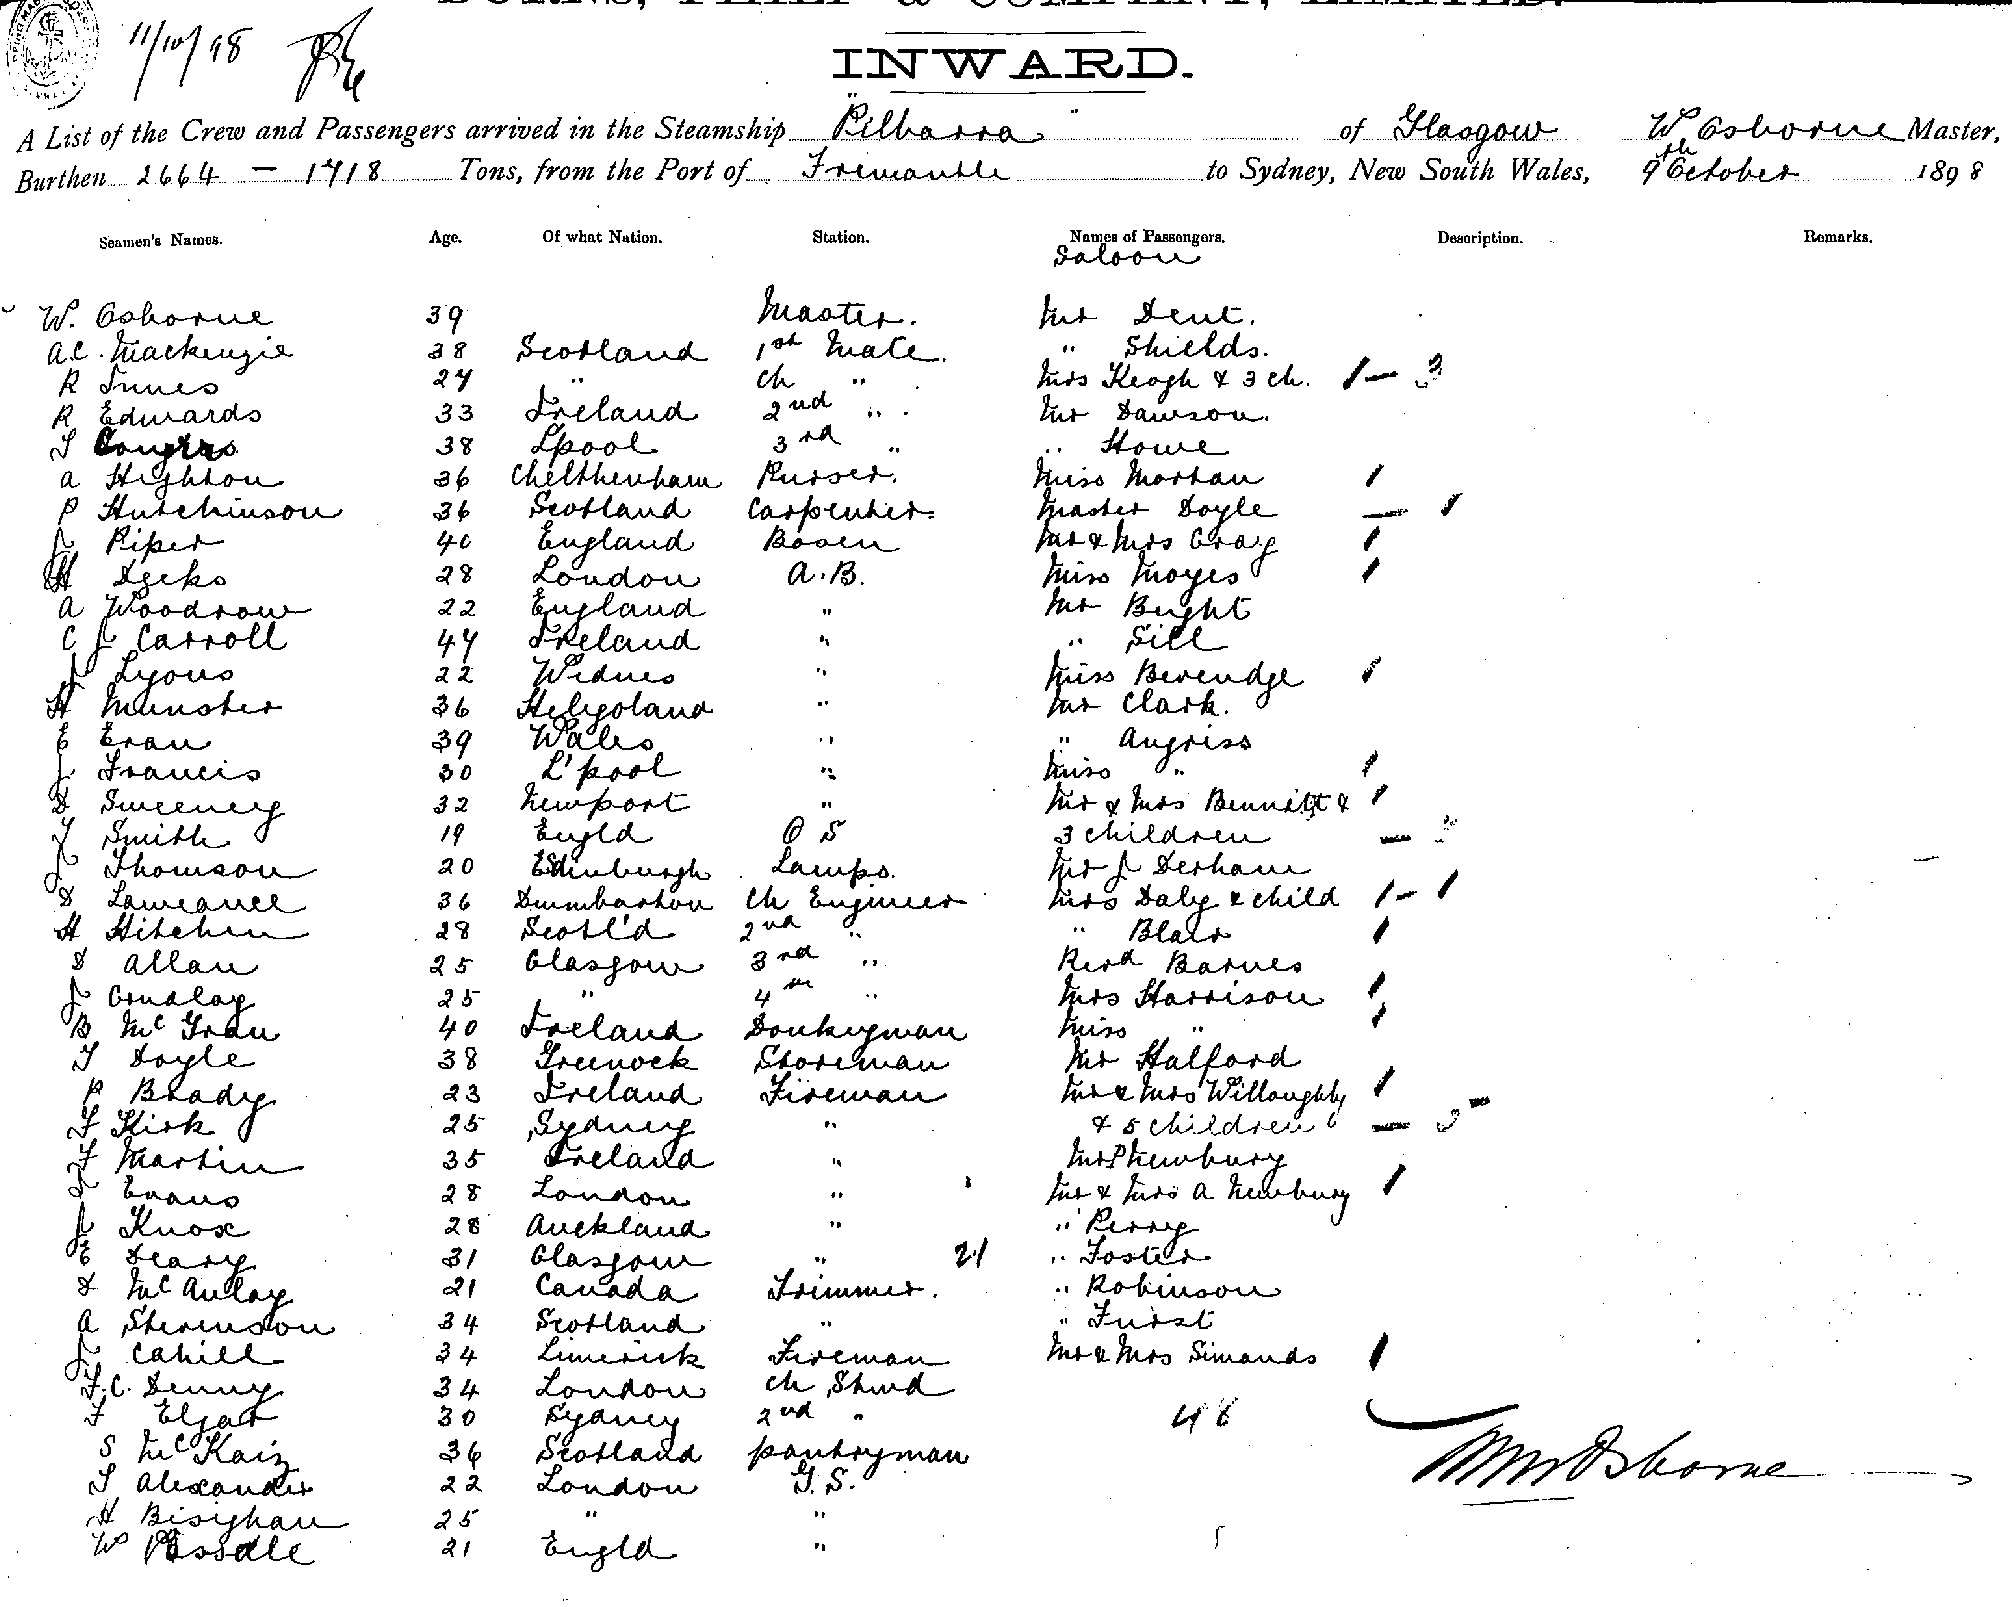 BURNS, PHILP & COMPANY, LIMITED.
11/10/98
INWARD.
A List of the Crew and Passengers arrived in the Steamship "Pilbarra" of Glasgow W. Osborne Master,
Burthen 2664 — 1718 Tons, from the Port of Fremantle to Sydney, New South Wales, 9th October 1898
Seamen's Names. Age. Of what Nation. Station. Names of Passengers. Description. Remarks.
Saloon
W. Osborne 39 Master. Mr Dent.
A.C. Mackenzie 38 Scotland 1st Mate. " Shields.
R Innes 27 " Ch " Mrs Keogh & 3 ch. 1 — 3
R Edwards 33 Ireland 2nd " Mr Dawson.
38 L'pool 3rd " " Howe
A Highton 36 Chelthenham Purser. Miss Morton 1
P Hutchinson 36 Scotland Carpenter Master Doyle — 1
J Piper 40 England Bosen Mr & Mrs Gray 1
H Deeks 28 London A.B. Miss Moyes 1
A Woodrow 22 England " Mr Bught
C J Carroll 47 Ireland " " Sill
J Lyons 22 Widnes " Miss Berendge 1
H Munster 36 Heligoland " Mr Clark.
E Evan 39 Wales " " Angriss
J Francis 30 L'pool " Miss " 1
D Sweeney 32 Newport " Mr & Mrs Bennett & 1
T Smith 19 Engld O S 3 children — 3
J Thomson 20 Edinburgh Lamps. Mr J Derham
D Lawrance 36 Dumbarton Ch Engineer Mrs Daly & child 1 - 1
H Hitchin 28 Scotl'd 2nd " " Blair 1
D Allan 25 Glasgow 3rd " Revd Barnes
J 25 " 4th " Mrs Harrison 1
B McGrau 40 Ireland Donkeyman Miss " 1
T Doyle 38 Greenock Storeman Mr Halford
P Brady 23 Ireland Fireman Mr & Mrs Willoughby 1
F Kirk 25 Sydney " & 5 children — 5
F Martin 35 Ireland " Mr P Newbury
Evans 28 London " Mr & Mrs A Newbury 1
J Knox 28 Auckland " " Perry
E Deary 31 Glasgow " 21 " Foster
D McAulay 21 Canada Trimmer. " Robinson
A Stevenson 34 Scotland " " Furst
J Cahill 34 Limerick Fireman Mr & Mrs Simonds 1
F.C. Denny 34 London Ch Stwd
F Elgar 30 Sydney 2nd " 48
S McKaig 36 Scotland pantryman
T Alexander 22 London G.S. Wm Osborne
H Bisighau 25 " "
W 21 Engld "